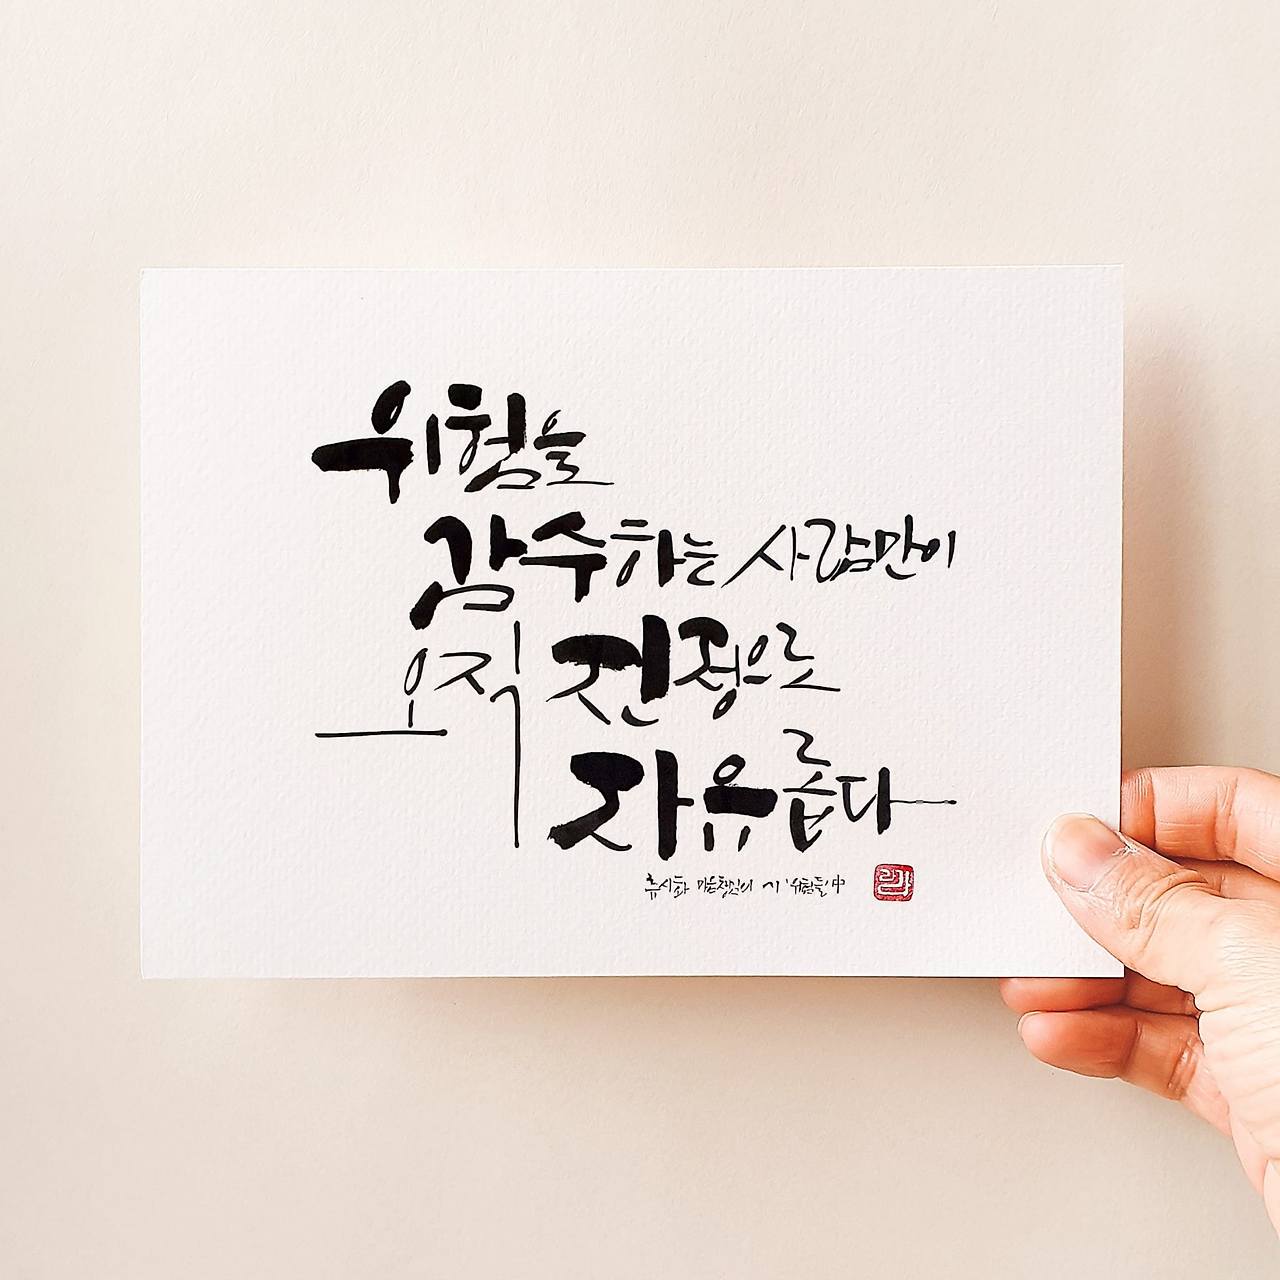 위험을
감수하는 사람만이
오직 진정으로
자유롭다
류시화 마음챙김의 시 '위험들' 中